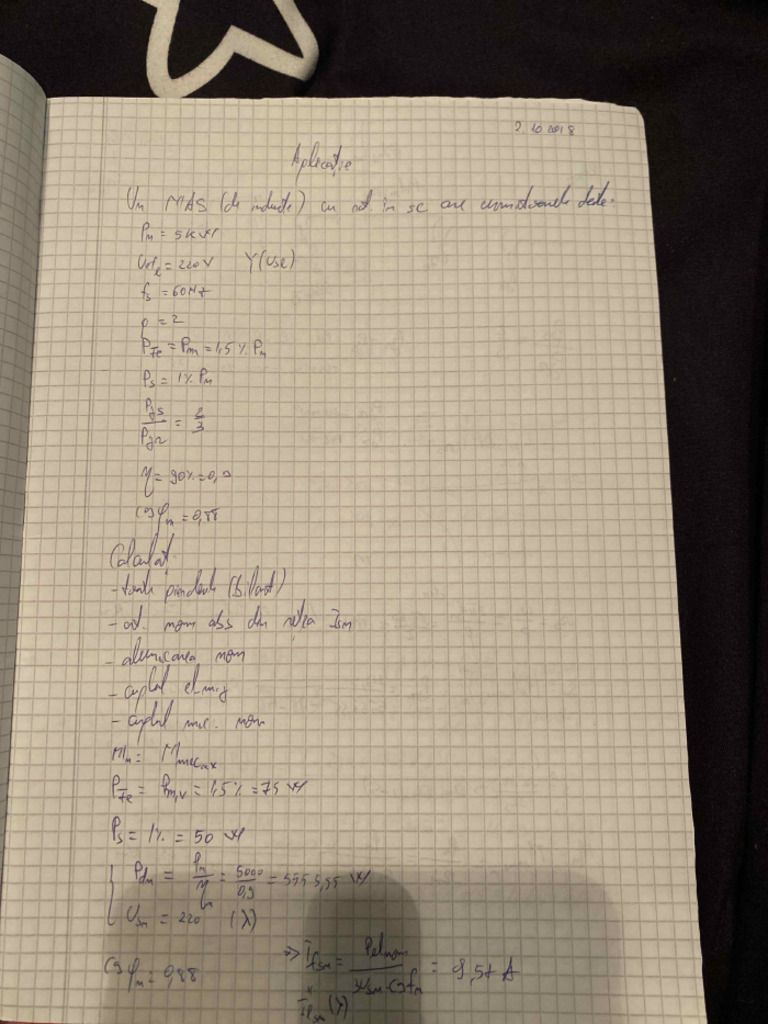 2.10.2018
Aplicație
Un MAS (de inducție) cu rot. în sc are următoarele date:
Pn = 5kW
Y(Use)
fs = 60Hz
p = 2
PFe = Pm = 1,5% Pn
Ps = 1% Pn
Pjs/Pjr = 2/3
η = 90% = 0,9
cosφn = 0,88
Calculați:
- toate pierderile (bilanț)
- crt. nom abs din rețea Isn
- alunecarea nom
- cuplul el-mg
- cuplul mec. nom
Mn = Mmec
PFe = Pm,v = 1,5% = 75 W
Ps = 1% = 50 W
Pn/η = 5000/0,9 = 5555,55 W
Usn = 220 (λ)
cosφn = 0,88 => Ifsn = Pelnom/3Usn·cosφn = 9,57 A
(λ)